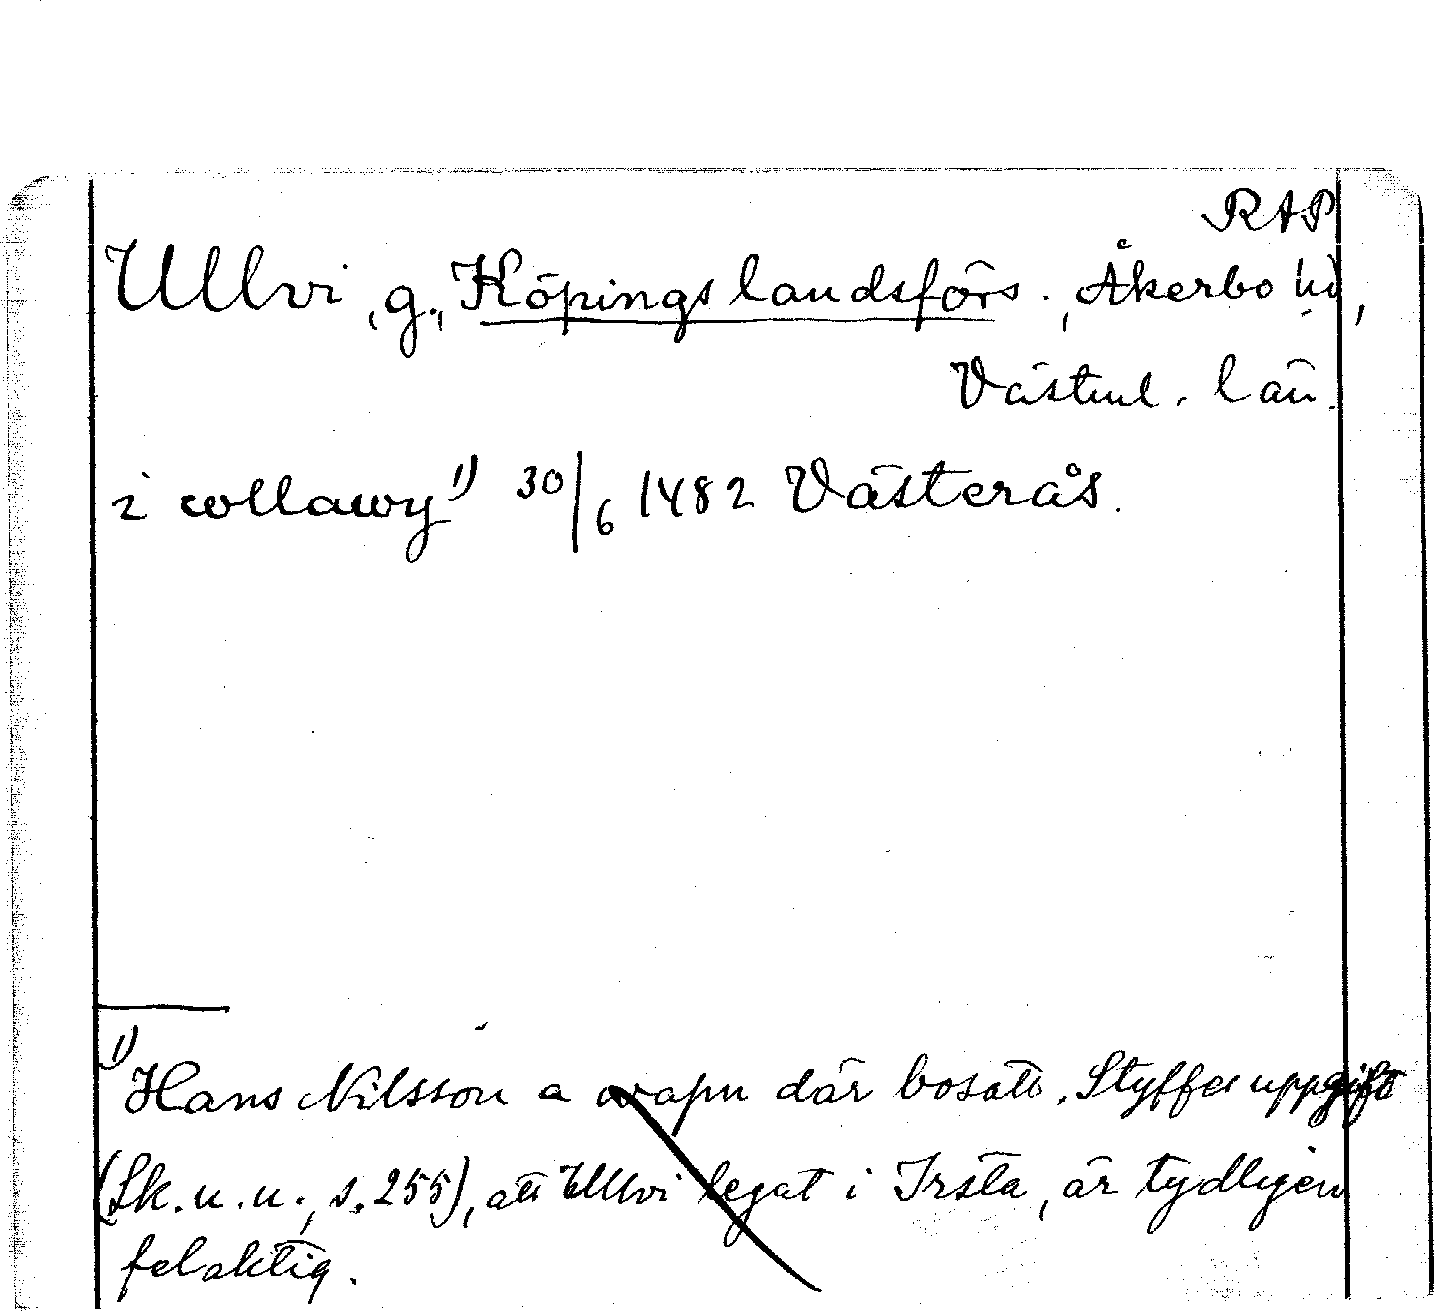 RAP
Ullvi, g., Köpings landsförs., Åkerbo hd,
Västml. län.
i vllawy 1) 30/6 1482 Västerås.
1) Hans Nilsson a wapn där bosatt. Styffes uppgift
(Sk. u. u., s. 255), att Ullvi legat i Irsta, är tydligen
felaktig.